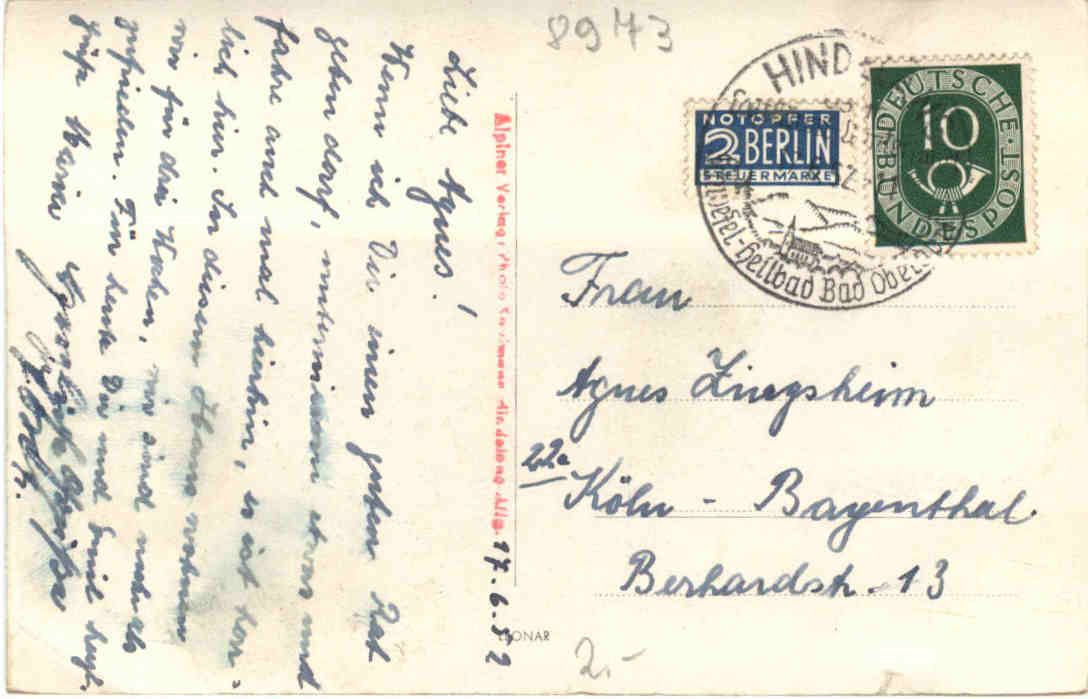 8973
Liebe Agnes!
Wenn ich Dir einen guten Rat
geben darf, unterniem etwas und
fahre auch mal hierhin, es ist herr-
lich hier. In disem Haus wohnen
wir für drei Wochen, wir sind
zufrieden. Für heute Dir und Emil herzl.
Grüße
17.6.52
Alpiner Verlag, Photo Hindelang, Allg.
HIND
Schwefel-Heilbad Bad Ober
NOTOPFER
2 BERLIN
STEUERMARKE
DEUTSCHE BUNDESPOST
10
Frau
Agnes Zingsheim
22a
Köln - Bayenthal.
Berhardstr. 13
LEONAR
2.-